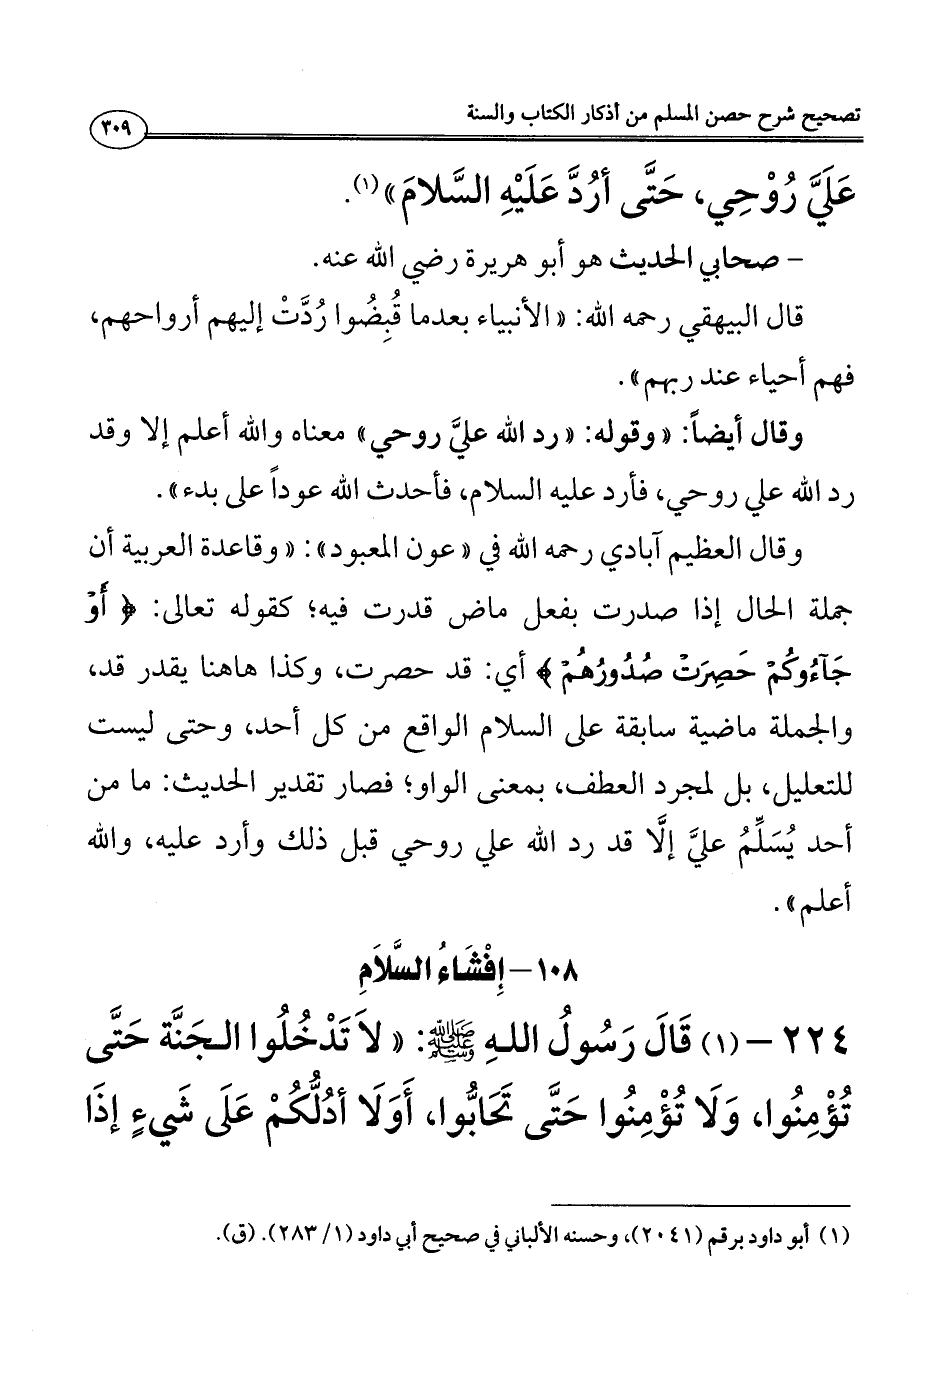 تصحيح شرح حصن المسلم من أذكار الكتاب والسنة
٣٠٩
عَلَيَّ رُوْحِي، حَتَّى أرُدَّ عَلَيْهِ السَّلامَ»(١).
– صحابي الحديث هو أبو هريرة رضي الله عنه.
قال البيهقي رحمه الله: «الأنبياء بعدما قُبِضُوا رُدَّتْ إليهم أرواحهم،
فهم أحياء عند ربهم».
وقال أيضاً: «وقوله: «رد الله عليَّ روحي» معناه والله أعلم إلا وقد
رد الله علي روحي، فأرد عليه السلام، فأحدث الله عوداً على بدء».
وقال العظيم آبادي رحمه الله في «عون المعبود»: «وقاعدة العربية أن
جملة الحال إذا صدرت بفعل ماض قدرت فيه؛ كقوله تعالى: ﴿ أَوْ
جَآءُوكُمْ حَصِرَتْ صُدُورُهُمْ ﴾ أي: قد حصرت، وكذا هاهنا يقدر قد،
والجملة ماضية سابقة على السلام الواقع من كل أحد، وحتى ليست
للتعليل، بل لمجرد العطف، بمعنى الواو؛ فصار تقدير الحديث: ما من
أحد يُسَلِّمُ عليَّ إلَّا قد رد الله علي روحي قبل ذلك وأرد عليه، والله
أعلم».
١٠٨– إِفْشَاءُ السَّلَامِ
٢٢٤ – (١) قَالَ رَسُولُ اللهِ ﷺ: «لاَ تَدْخُلُوا الجَنَّةَ حَتَّى
تُؤْمِنُوا، وَلَا تُؤْمِنُوا حَتَّى تَحَابُّوا، أَوَلَا أدُلُّكُمْ عَلَى شَيءٍ إذَا
(١) أبو داود برقم (٢٠٤١)، وحسنه الألباني في صحيح أبي داود (١/ ٢٨٣). (ق).